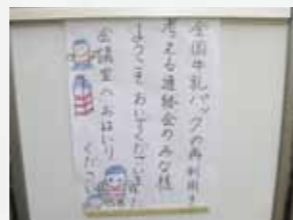 全国牛乳パックの再利用を
考える連絡会のみな様
ようこそおいでくださいました
会議室へおはいり
ください